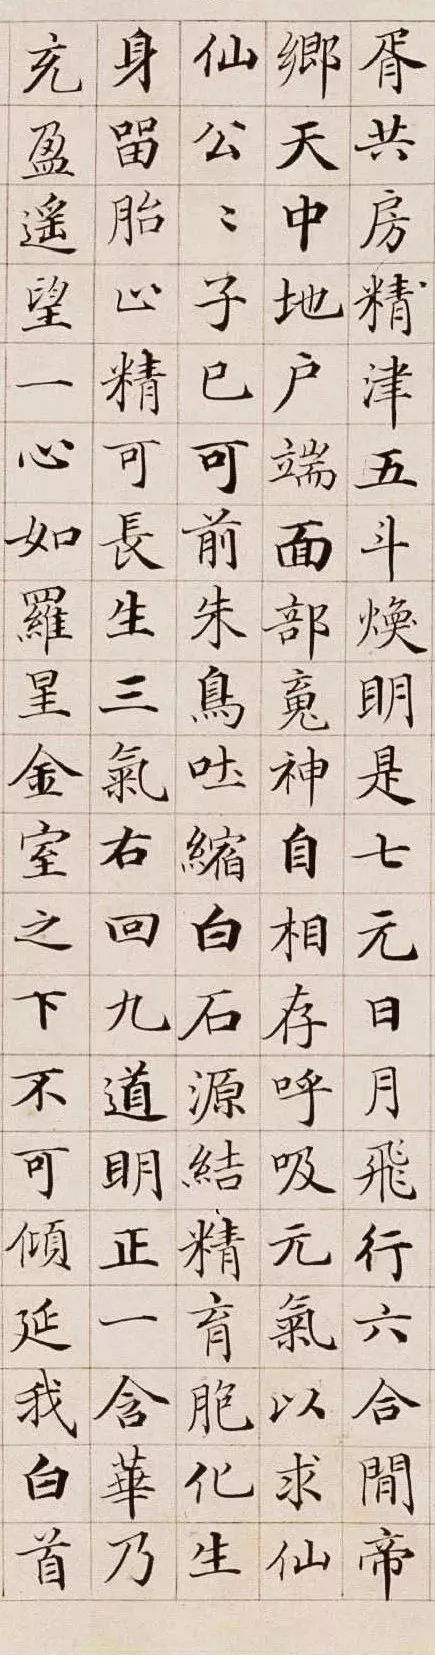 胥共房精津五斗煥明是七元日月飛行六合間帝
鄉天中地户端面部魂神自相存呼吸元氣以求仙
仙公〻子已可前朱鳥吐縮白石源結精育胞化生
身留胎止精可長生三氣右回九道明正一含華乃
充盈遥望一心如羅星金室之下不可傾延我白首